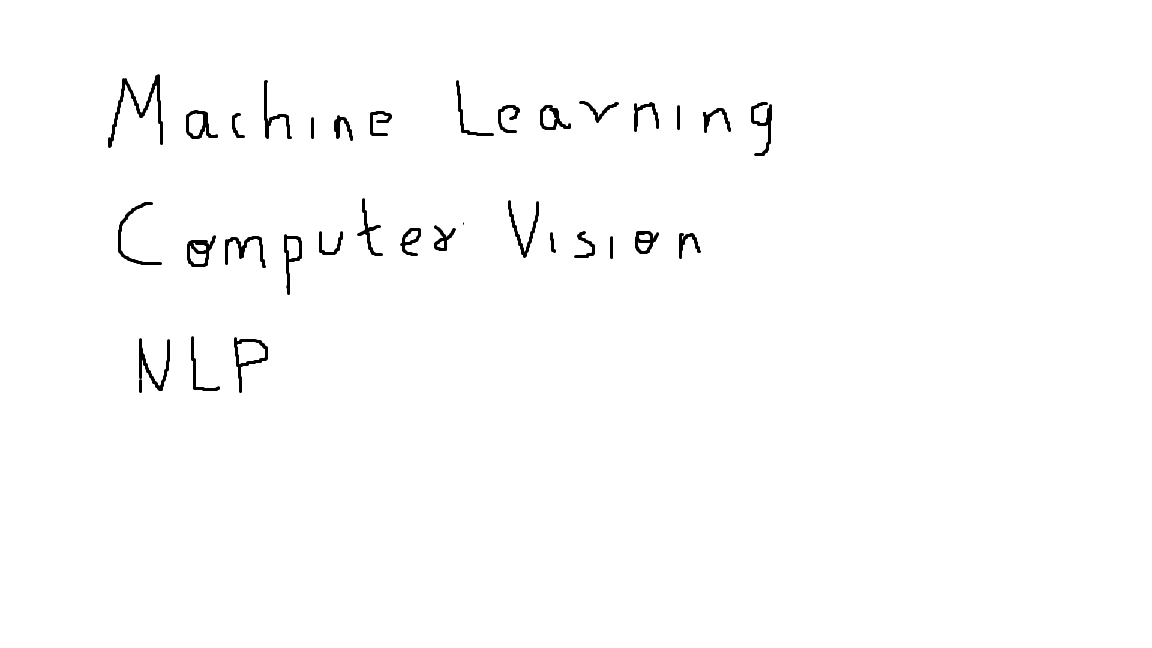 Machine Learning
Computer Vision
NLP